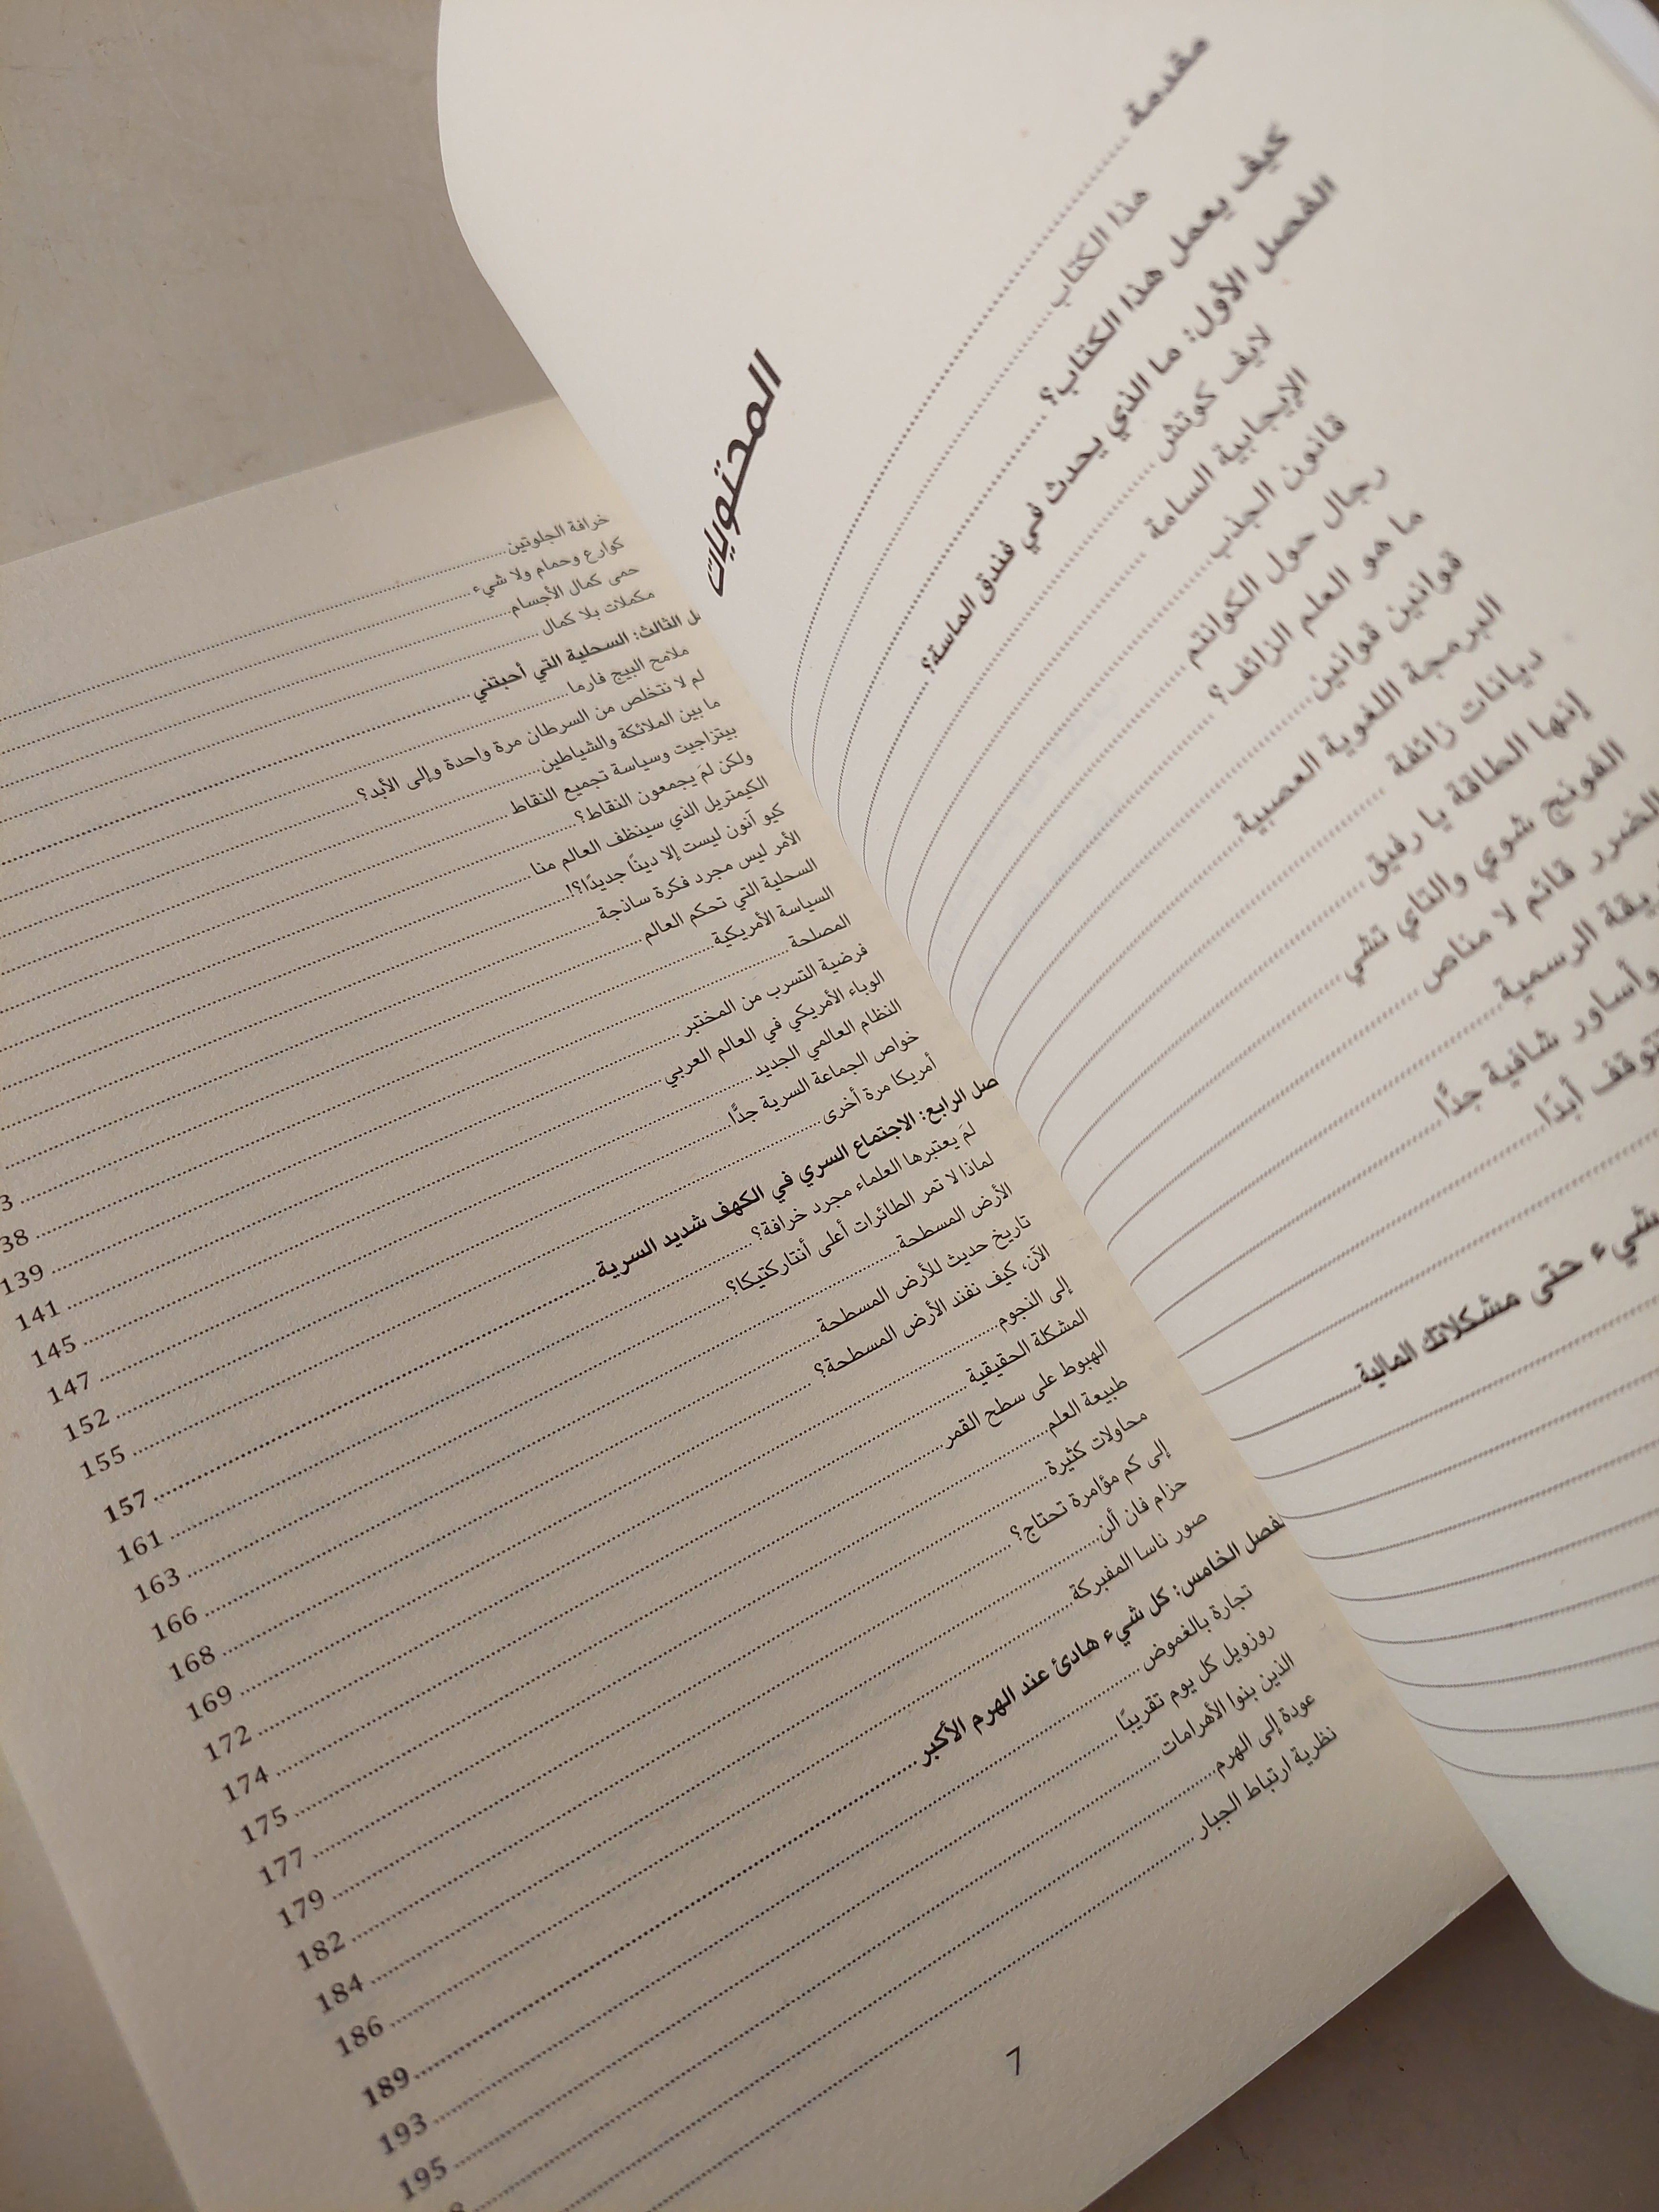 المحتويات
مقدمة
هذا الكتاب
كيف يعمل هذا الكتاب؟
الفصل الأول: ما الذي يحدث في فندق الماسة؟
لايف كوتش
الإيجابية السامة
قانون الجذب
رجال حول الكوانتم
ما هو العلم الزائف؟
قوانين قوانين
البرمجة اللغوية العصبية
ديانات زائفة
إنها الطاقة يا رفيق
الفونج شوي والتاي تشي
الضرر قائم لا مناص
الرسمية
وأساور شافية جدًّا
تتوقف أبدًا
شيء حتى مشكلاتك المالية
خرافة الجلوتين
كوارع وحمام ولا شيء
حمى كمال الأجسام
مكملات بلا كمال
الثالث: السحلية التي أحبتني
ملامح البيج فارما
لم لا نتخلص من السرطان مرة واحدة وإلى الأبد؟
ما بين الملائكة والشياطين
بيتزاجيت وسياسة تجميع النقاط
ولكن لمَ يجمعون النقاط؟
الكيمتريل الذي سينظف العالم منا
كيو آنون ليست إلا دينًا جديدًا؟!
الأمر ليس مجرد فكرة ساذجة
السحلية التي تحكم العالم
السياسة الأمريكية
المصلحة
فرضية التسرب من المختبر
الوباء الأمريكي في العالم العربي
النظام العالمي الجديد
خواص الجماعة السرية جدًّا
أمريكا مرة أخرى
الرابع: الاجتماع السري في الكهف شديد السرية 157
لمَ يعتبرها العلماء مجرد خرافة؟ 161
لماذا لا تمر الطائرات أعلى أنتاركتيكا؟ 163
الأرض المسطحة 166
تاريخ حديث للأرض المسطحة 168
الآن، كيف نفند الأرض المسطحة؟ 169
إلى النجوم 172
المشكلة الحقيقية 174
الهبوط على سطح القمر 175
طبيعة العلم 177
محاولات كثيرة 179
إلى كم مؤامرة تحتاج؟ 182
حزام فان ألن 184
صور ناسا المفبركة 186
الفصل الخامس: كل شيء هادئ عند الهرم الأكبر 189
تجارة بالغموض 193
روزويل كل يوم تقريبًا 195
الذين بنوا الأهرامات
عودة إلى الهرم
نظرية ارتباط الجبار
7